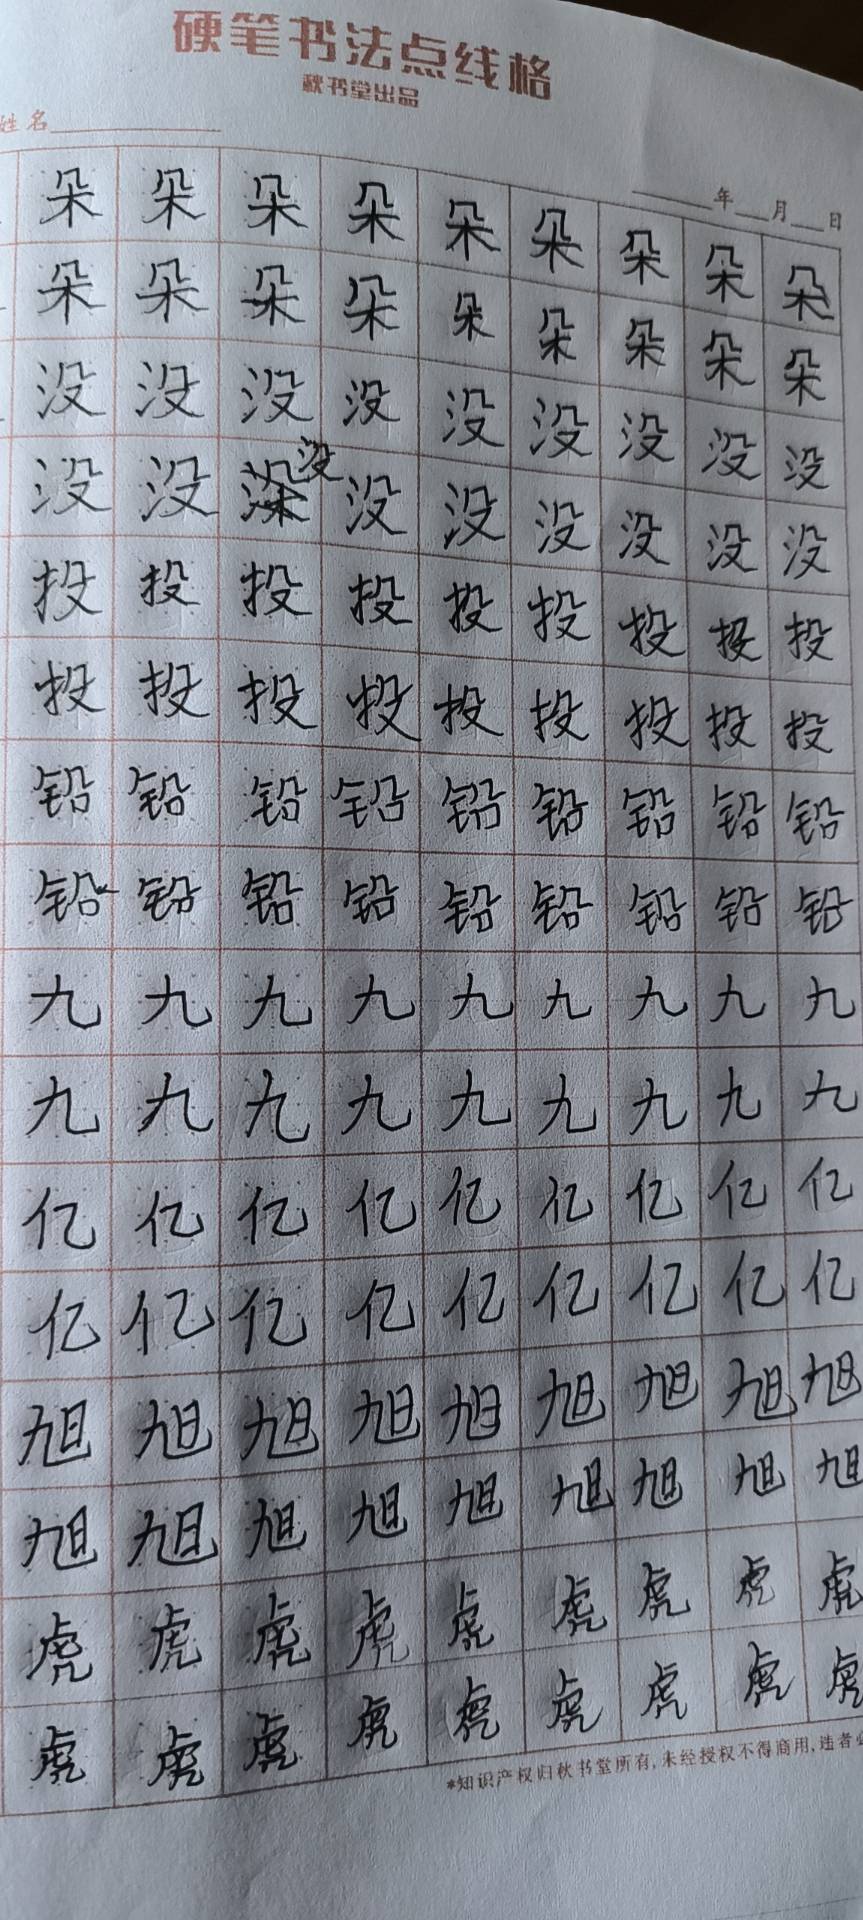 硬笔书法点线格
秋书堂出品
姓名
年 月 日
朵 朵 朵 朵 朵 朵 朵 朵 朵
朵 朵 朵 朵 朵 朵 朵 朵 朵
没 没 没 没 没 没 没 没 没
没
没 没 深 没 没 没 没 没 没
投 投 投 投 投 投 投 投 投
投 投 投 投 投 投 投 投 投
铅 铅 铅 铅 铅 铅 铅 铅 铅
铅 铅 铅 铅 铅 铅 铅 铅 铅
九 九 九 九 九 九 九 九 九
九 九 九 九 九 九 九 九 九
亿 亿 亿 亿 亿 亿 亿 亿 亿
亿 亿 亿 亿 亿 亿 亿 亿 亿
旭 旭 旭 旭 旭 旭 旭 旭 旭
旭 旭 旭 旭 旭 旭 旭 旭 旭
虎 虎 虎 虎 虎 虎 虎 虎 虎
虎 虎 虎 虎 虎 虎 虎 虎 虎
*知识产权归秋书堂所有,未经授权不得商用,违者必